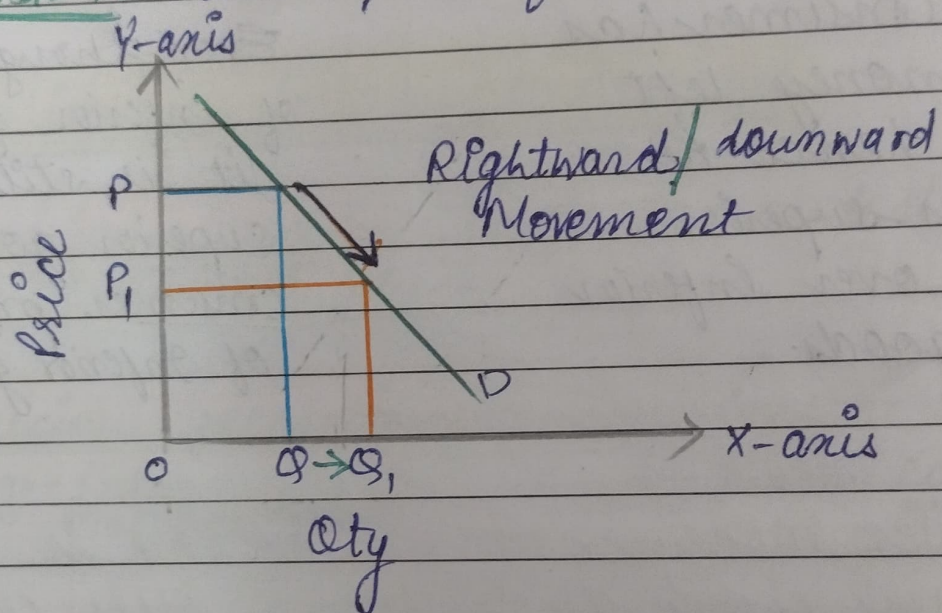 Y-axis
Rightward/ downward
Movement
P
P1
Price
D
O
Q → Q1
X-axis
Qty